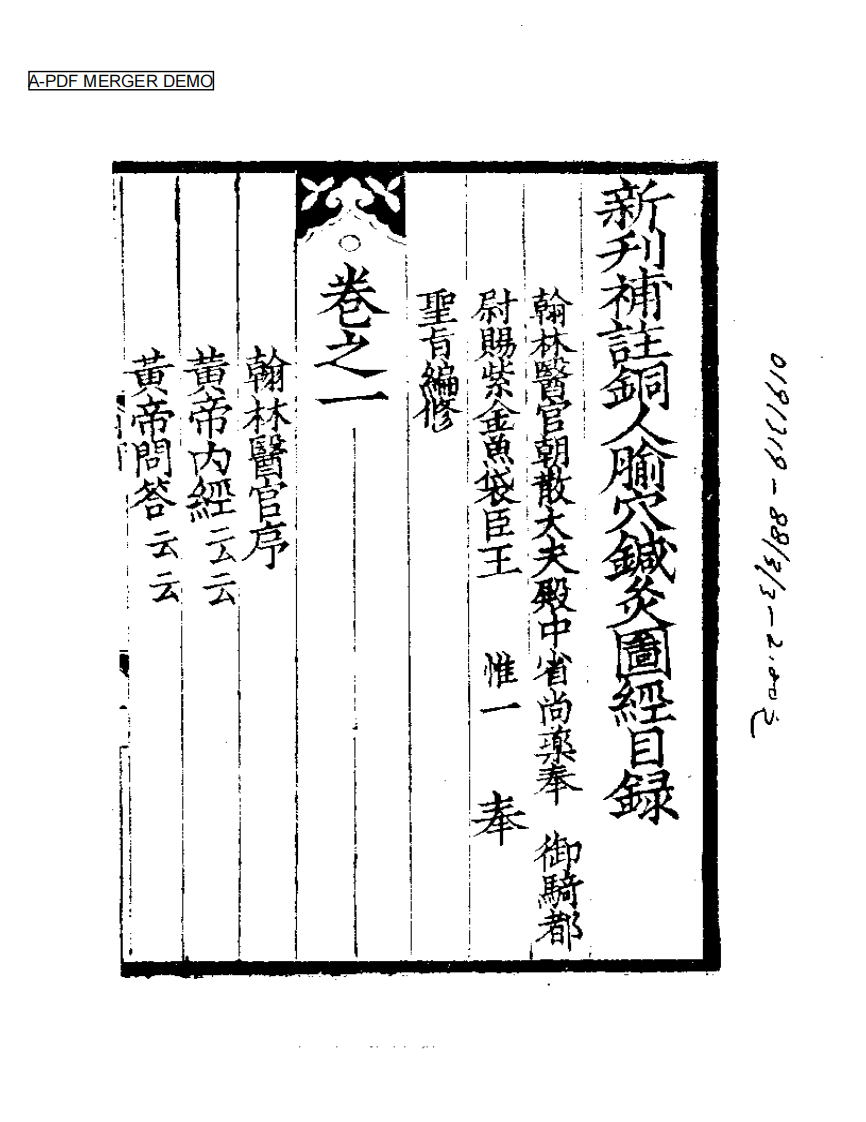 A-PDF MERGER DEMO
新刋補註銅人腧穴鍼灸圖經目録
翰林醫官朝散大夫殿中省尚藥奉 御騎都
尉賜紫金魚袋臣王 惟一 奉
聖旨編修
卷之一
翰林醫官序
黃帝內經云云
黃帝問答云云
0191219-88/3/3-2.